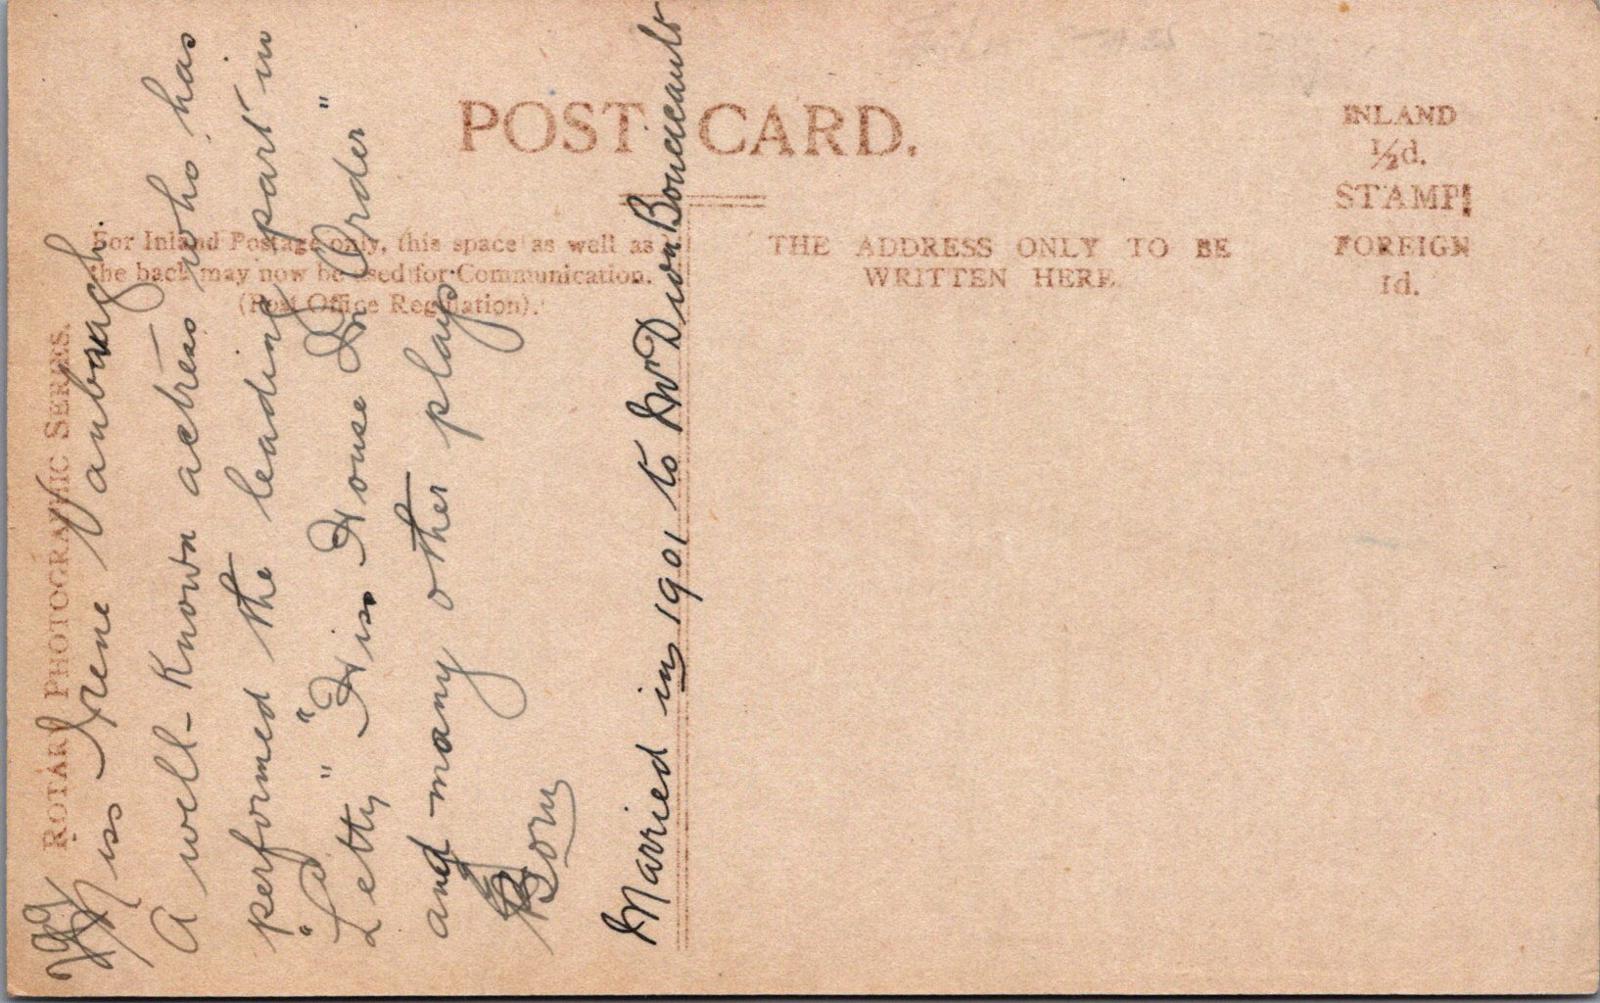 POST CARD.
INLAND
½d.
STAMP.
FOREIGN
1d.
For Inland Postage only, this space as well as
the back may now be used for Communication.
(Post Office Regulation).
THE ADDRESS ONLY TO BE
WRITTEN HERE.
ROTARY PHOTOGRAPHIC SERIES.
Miss Irene Vanbrugh.
A well-known actress who has
performed the leading part in
"Letty," "His House In Order"
and many other plays
Born
Married in 1901 to Mr Dion Boucicault